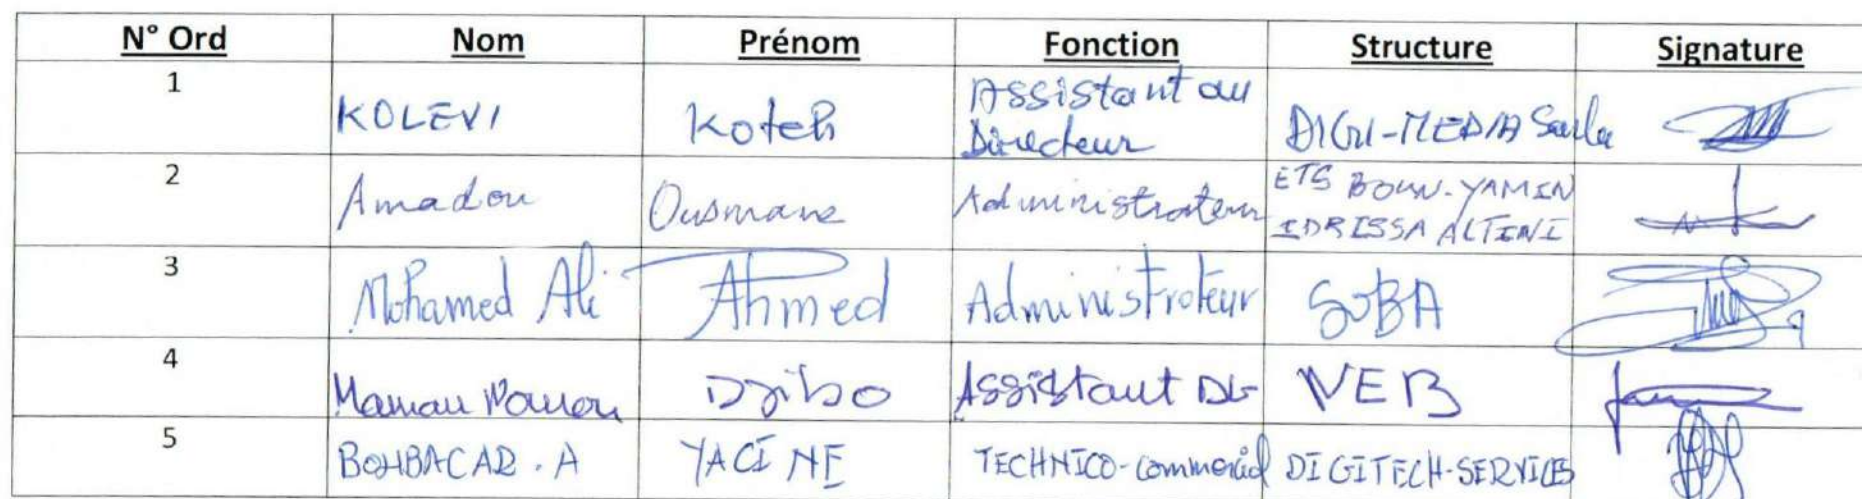 N° Ord Nom Prénom Fonction Structure Signature
1 KOLEVI Koteh Assistant au Directeur DIGI-MEDIA Sarlu
2 Amadou Ousmane Administrateur ETS BOUN-YAMIN IDRISSA ALTINI
3 Mohamed Ali Ahmed Administrateur SOBA
4 Maman Djibo Assistant DG NEB
5 BOUBACAR . A YACINE TECHNICO-commercial DIGITECH-SERVICES